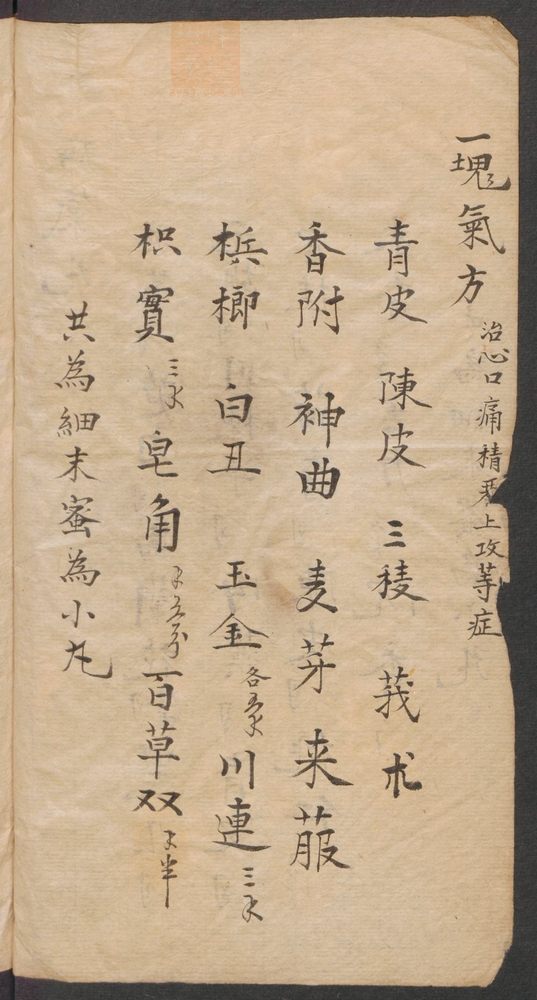 一塊氣方 治心口痛積上攻等症
青皮 陳皮 三稜 莪朮
香附 神曲 麦芽 来菔
梹榔 白丑 玉金 各 川連 三
枳實 三 皂角 百草双 半
共為細末蜜為小丸